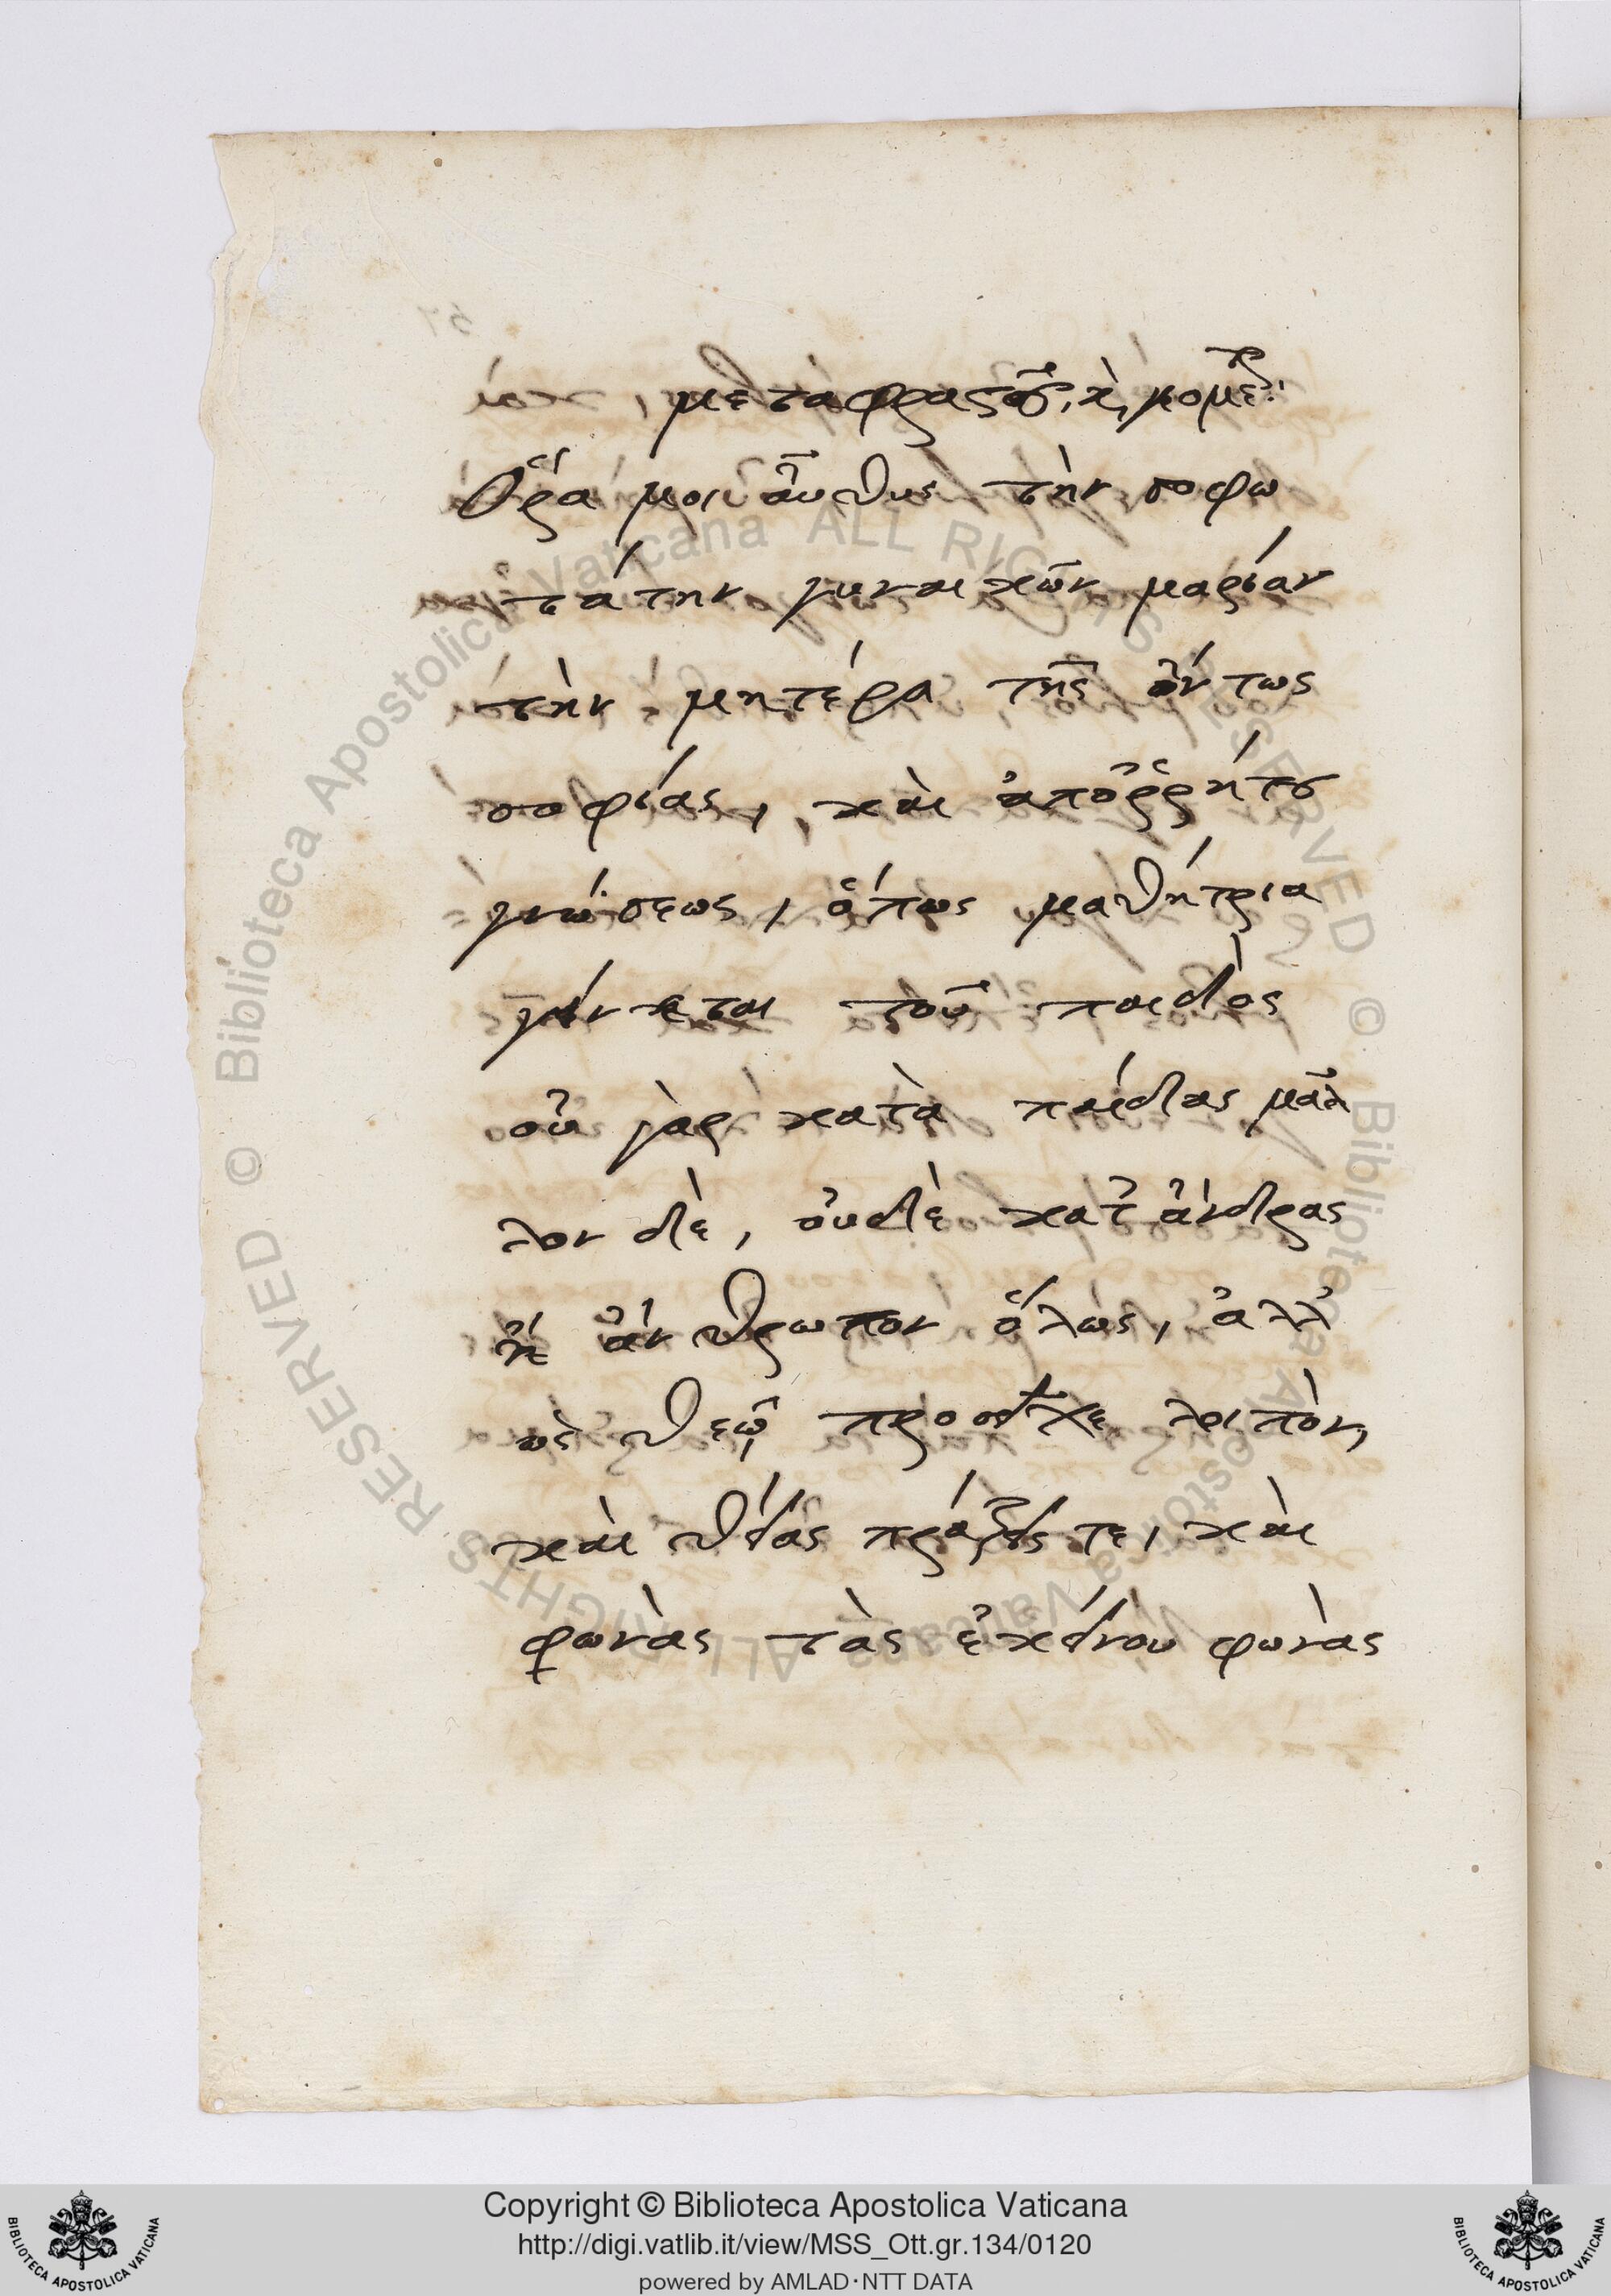 μεταφραστοῦ, κ, κομε
Ὅρα μοι αὖθις τὴν σοφω
τάτην γυναικῶν μαρίαν
τὴν μητέρα τῆς ὄντως
σοφίας, καὶ ἀποῤῥήτου
γνώσεως, ὅπως μαθήτρια
γίνεται τοῦ παιδὸς
οὐ γὰρ κατὰ παῖδας μᾶλ
λον δὲ, οὐδὲ κατ' ἄνδρας
ἢ ἄνθρωπον ὅλως, ἀλλ'
ὡς θεῷ προσεῖχε λοιπὸν,
καὶ θείας πράξεις τε, καὶ
φωνὰς τὰς ἐκείνου φωνὰς
Copyright © Biblioteca Apostolica Vaticana
http://digi.vatlib.it/view/MSS_Ott.gr.134/0120
powered by AMLAD·NTT DATA
BIBLIOTECA APOSTOLICA VATICANA
BIBLIOTECA APOSTOLICA VATICANA
© Biblioteca Apostolica Vaticana ALL RIGHTS RESERVED © Biblioteca Apostolica Vaticana ALL RIGHTS RESERVED